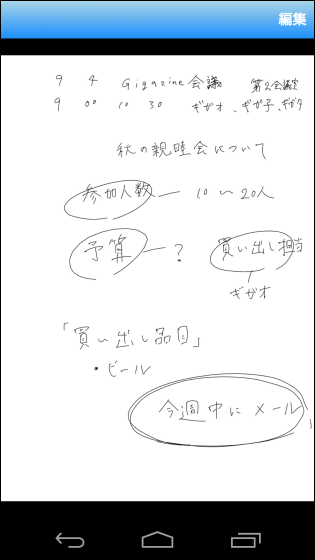 編集
9 4 Gigazine会議 第2会議室
9 00 10 30 ギガオ、ギガ子、ギガタ
秋の親睦会について
参加人数 — 10〜20人
予算 — ? 買い出し担当
ギガオ
「買い出し品目」
・ビール
今週中にメール